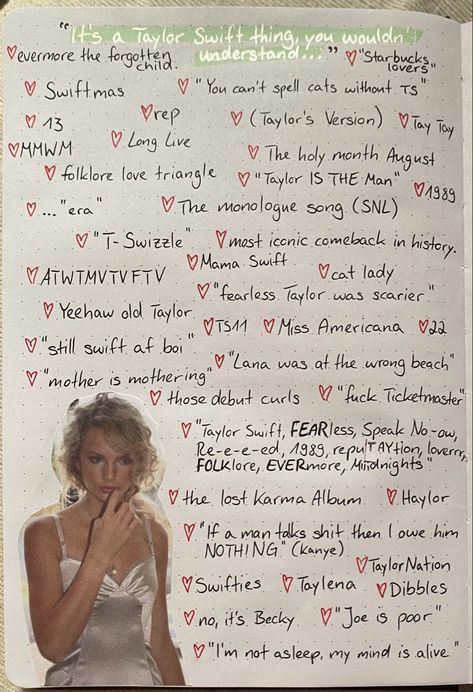 "It's a Taylor Swift thing, you wouldn't
understand..."
♡ evermore the forgotten
child.
♡ "Starbucks
lovers"
♡ Swiftmas
♡ "You can't spell cats without TS"
♡ 13
♡ rep
♡ (Taylor's Version)
♡ Tay Tay
♡ MMWM
♡ Long Live
♡ The holy month August
♡ folklore love triangle
♡ "Taylor IS THE Man"
♡ 1989
♡ ... "era"
♡ The monologue song (SNL)
♡ "T-Swizzle"
♡ most iconic comeback in history.
♡ Mama Swift
♡ ATWTMVTVFTV
♡ cat lady
♡ "fearless Taylor was scarier"
♡ Yeehaw old Taylor
♡ TS11
♡ Miss Americana
♡ 22
♡ "still swift af boi"
♡ "Lana was at the wrong beach"
♡ "mother is mothering"
♡ those debut curls
♡ "fuck Ticketmaster"
♡ "Taylor Swift, FEARless, Speak No-ow,
Re-e-e-ed, 1989, repuTAYtion, loverrr,
FOLKlore, EVERmore, Miidnights"
♡ the lost Karma Album
♡ Haylor
♡ "If a man talks shit then I owe him
NOTHING" (kanye)
♡ TaylorNation
♡ Swifties
♡ Taylena
♡ Dibbles
♡ no, it's Becky
♡ "Joe is poor"
♡ "I'm not asleep, my mind is alive"